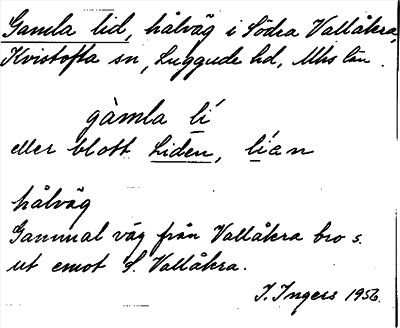 Gamla lid, hålväg i Södra Vallåkra,
Kvistofta sn, Luggude hd, Mhs län.
gàmla lí
eller blott Liden, lían
hålväg
Gammal väg från Vallåkra bro s.
ut emot S. Vallåkra.
I. Ingers 1956.